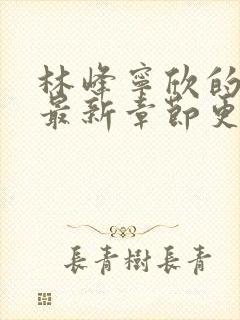 林峰寧欣的
最新章節更
長青樹長青